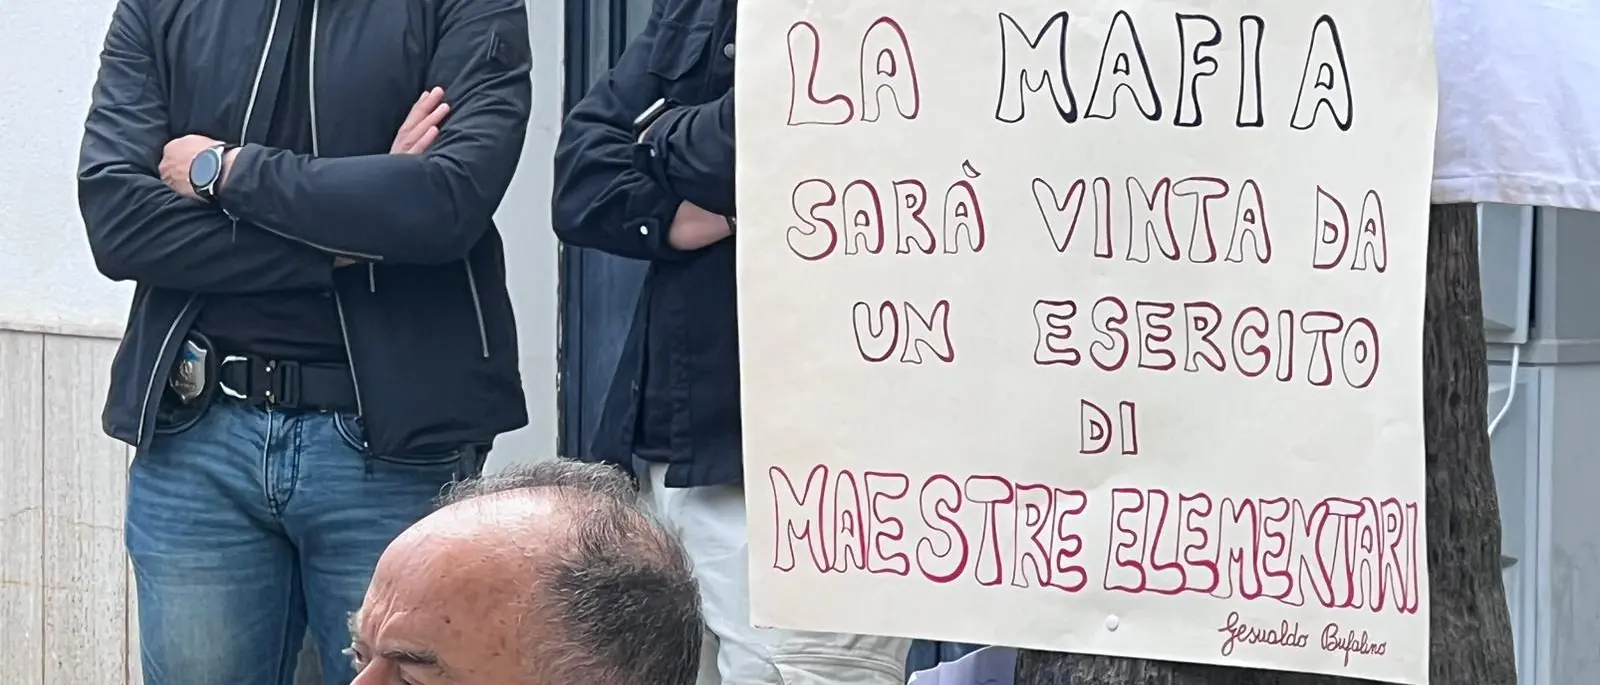 LA MAFIA
SARÀ VINTA DA
UN ESERCITO
DI
MAESTRE ELEMENTARI
Gesualdo Bufalino